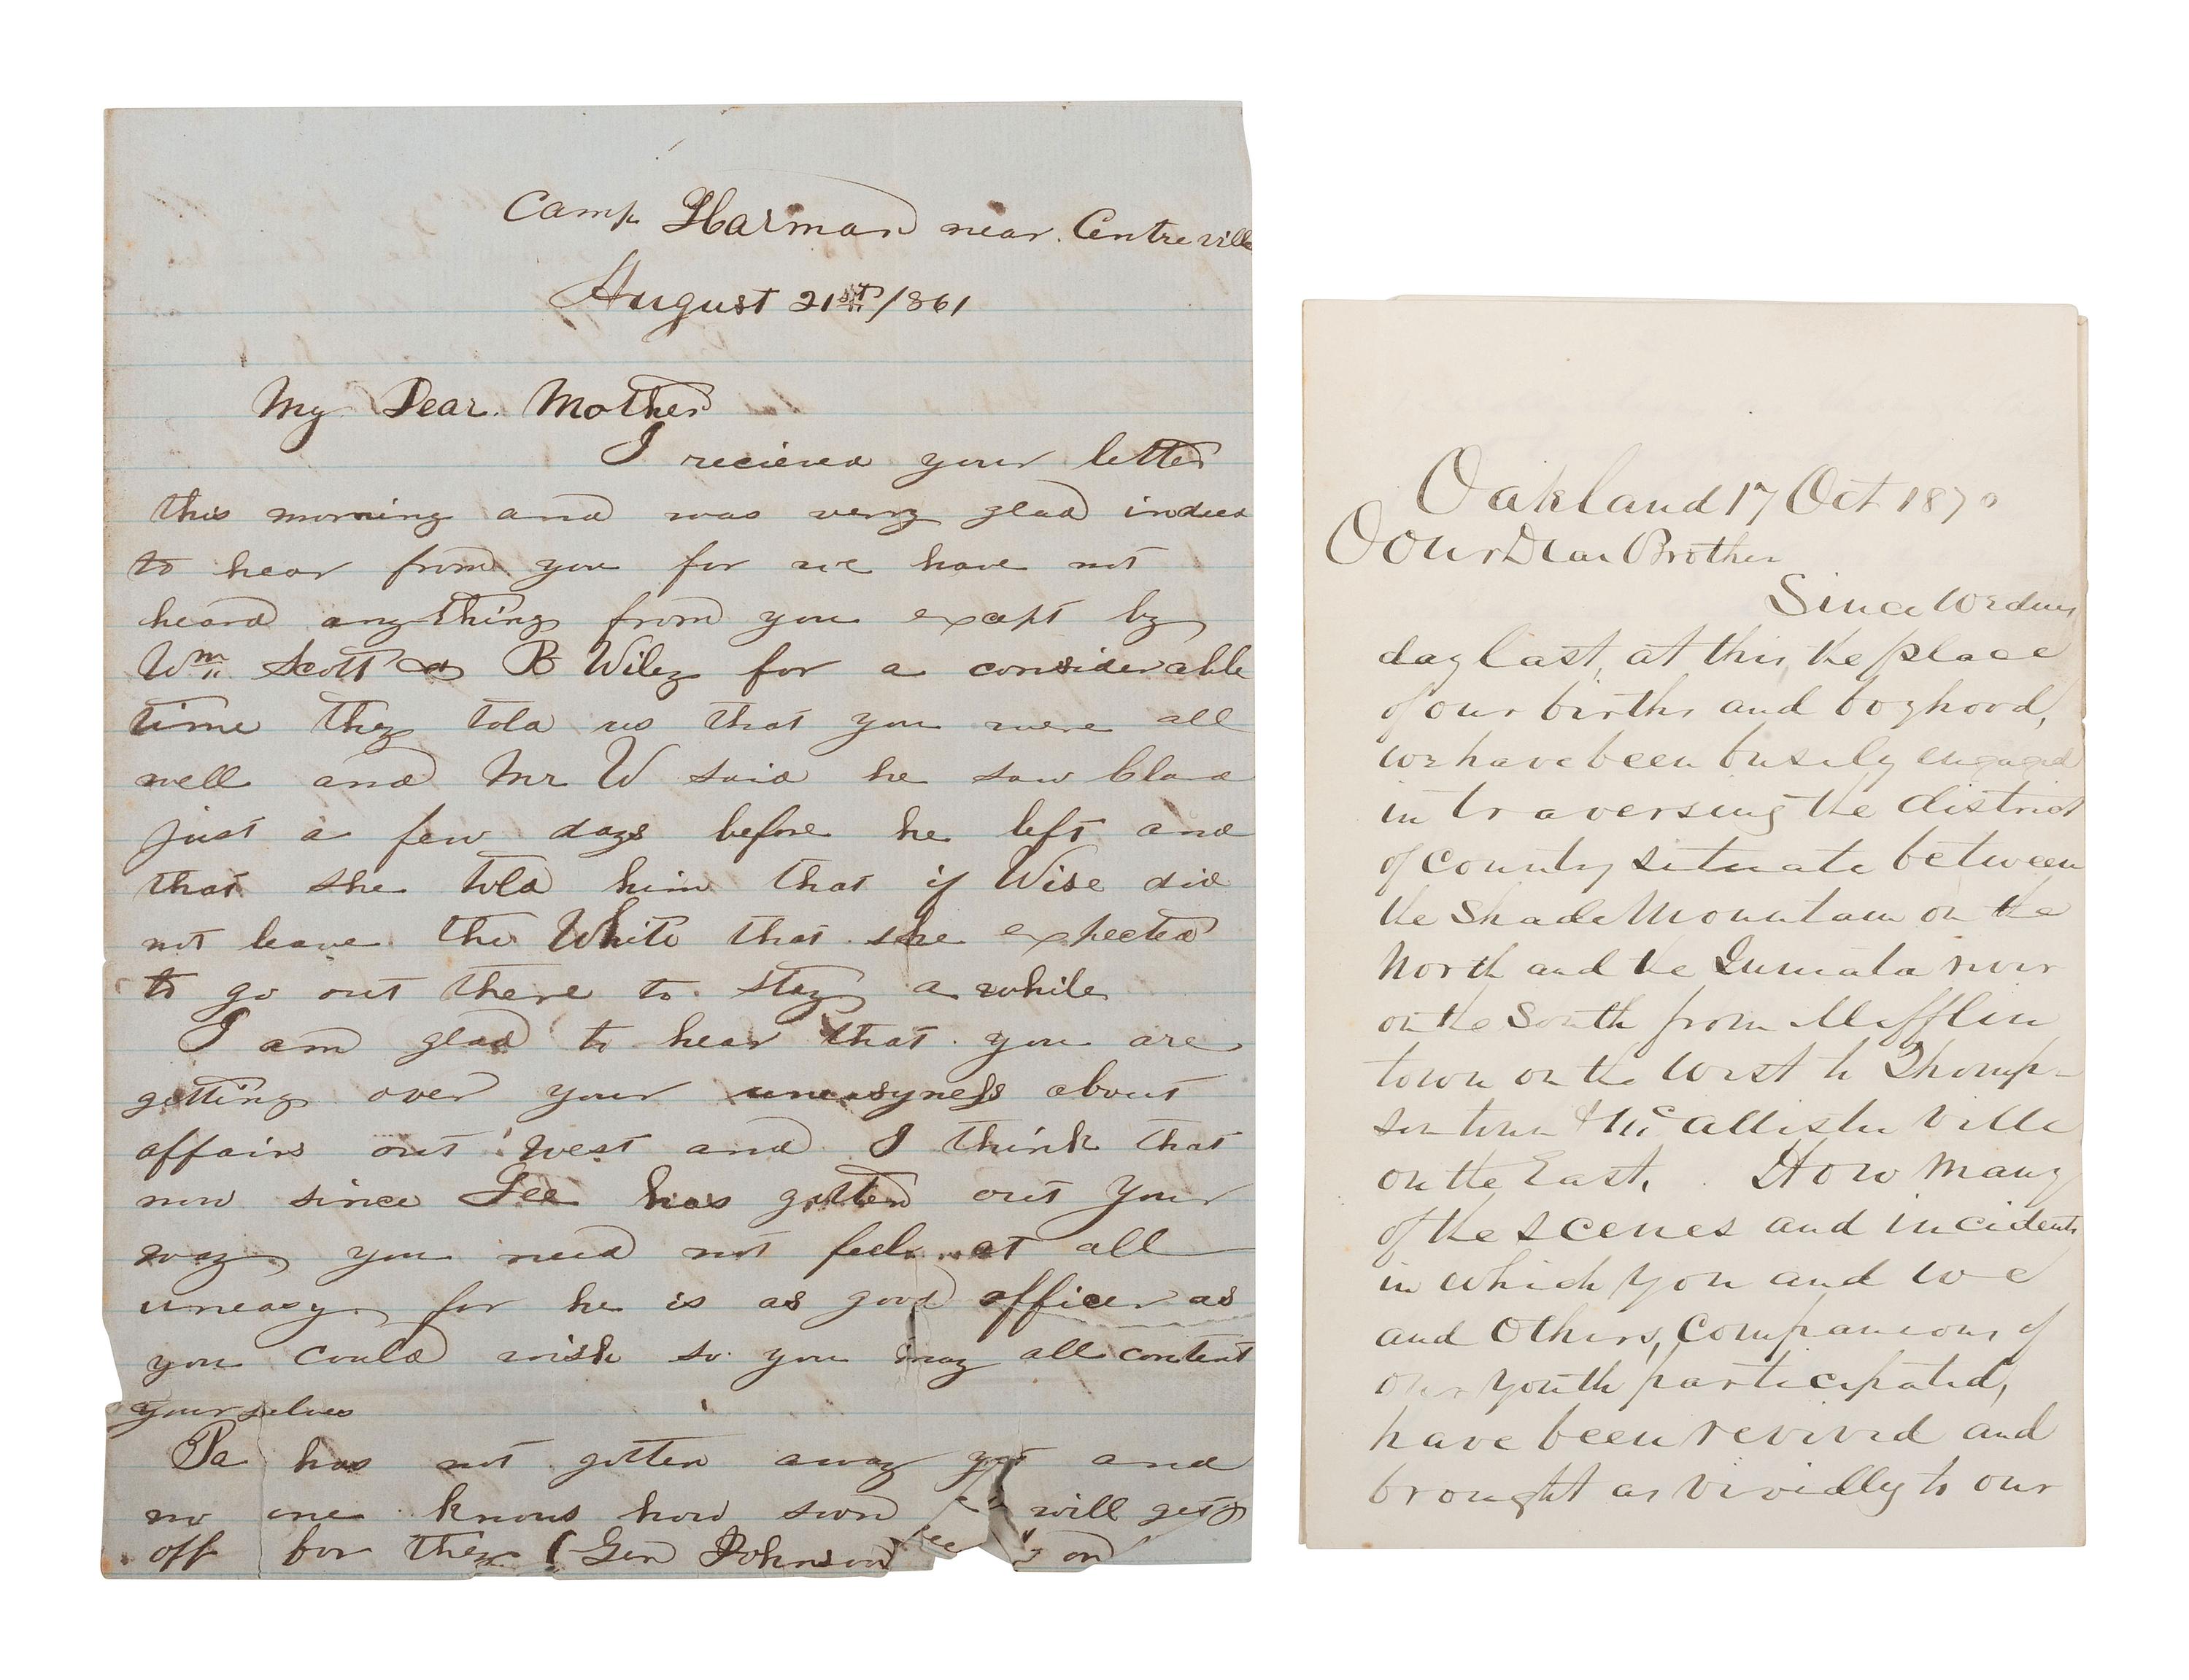 Camp Harman near Centreville
August 21st / 1861
My Dear Mother
I recieved your letter
this morning and was very glad indeed
to hear from you for we have not
heard anything from you except by
Wm Scott & B Wiley for a considerable
time they told us that you were all
well and Mr W said he saw
just a few days before he left and
that she told him that if Wise did
not leave the White that she expected
to go out there to stay a while
I am glad to hear that you are
getting over your uneasyness about
affairs out west and I think that
now since Lee has gotten out your
way you need not feel at all
uneasy for he is as good officer as
you could wish so you may all content
yourselves
Pa has not gotten away yet and
no one knows how soon will get
off for they (Gen Johnson on
Oakland 17 Oct 1870
Our Dear Brother
Since Wednes
day last, at this, the place
of our births and boyhood,
we have been busily engaged
in traversing the district
of county situate between
the Shade Mountain on the
North and the Juniata river
on the South from Mifflin
town on the West to Thomp-
sontown & McAllisterville
on the East. How many
of the scenes and incidents
in which you and we
and others, companions of
our youth participated,
have been revived and
brought as vividly to our